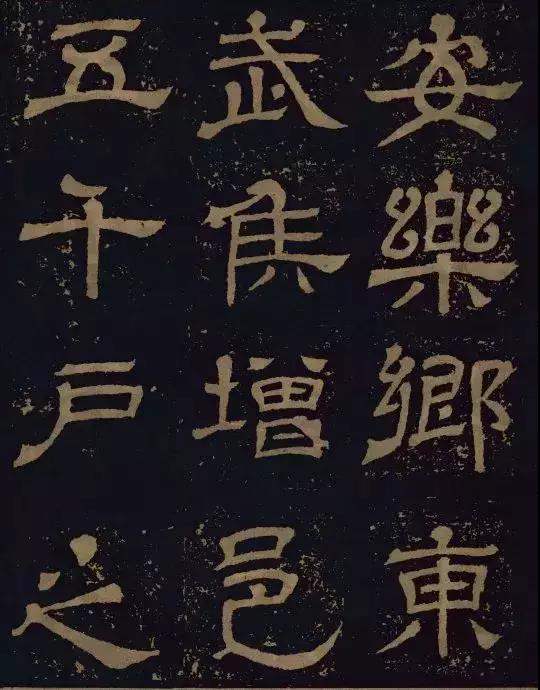 安樂鄉東
武侯增邑
五千戶之